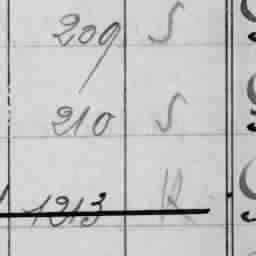 209 S
210 S
1213 R